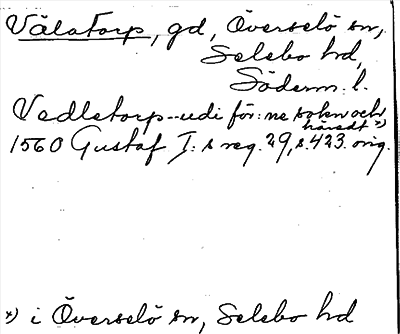 Välatorp, gd, Överselö sn,
Selebo hd,
Söderm. l.
Vedletorp--udi för:ne sokn och
häredt x)
1560 Gustaf I:s reg. 29, s. 423. orig.
x) i Överselö sn, Selebo hd